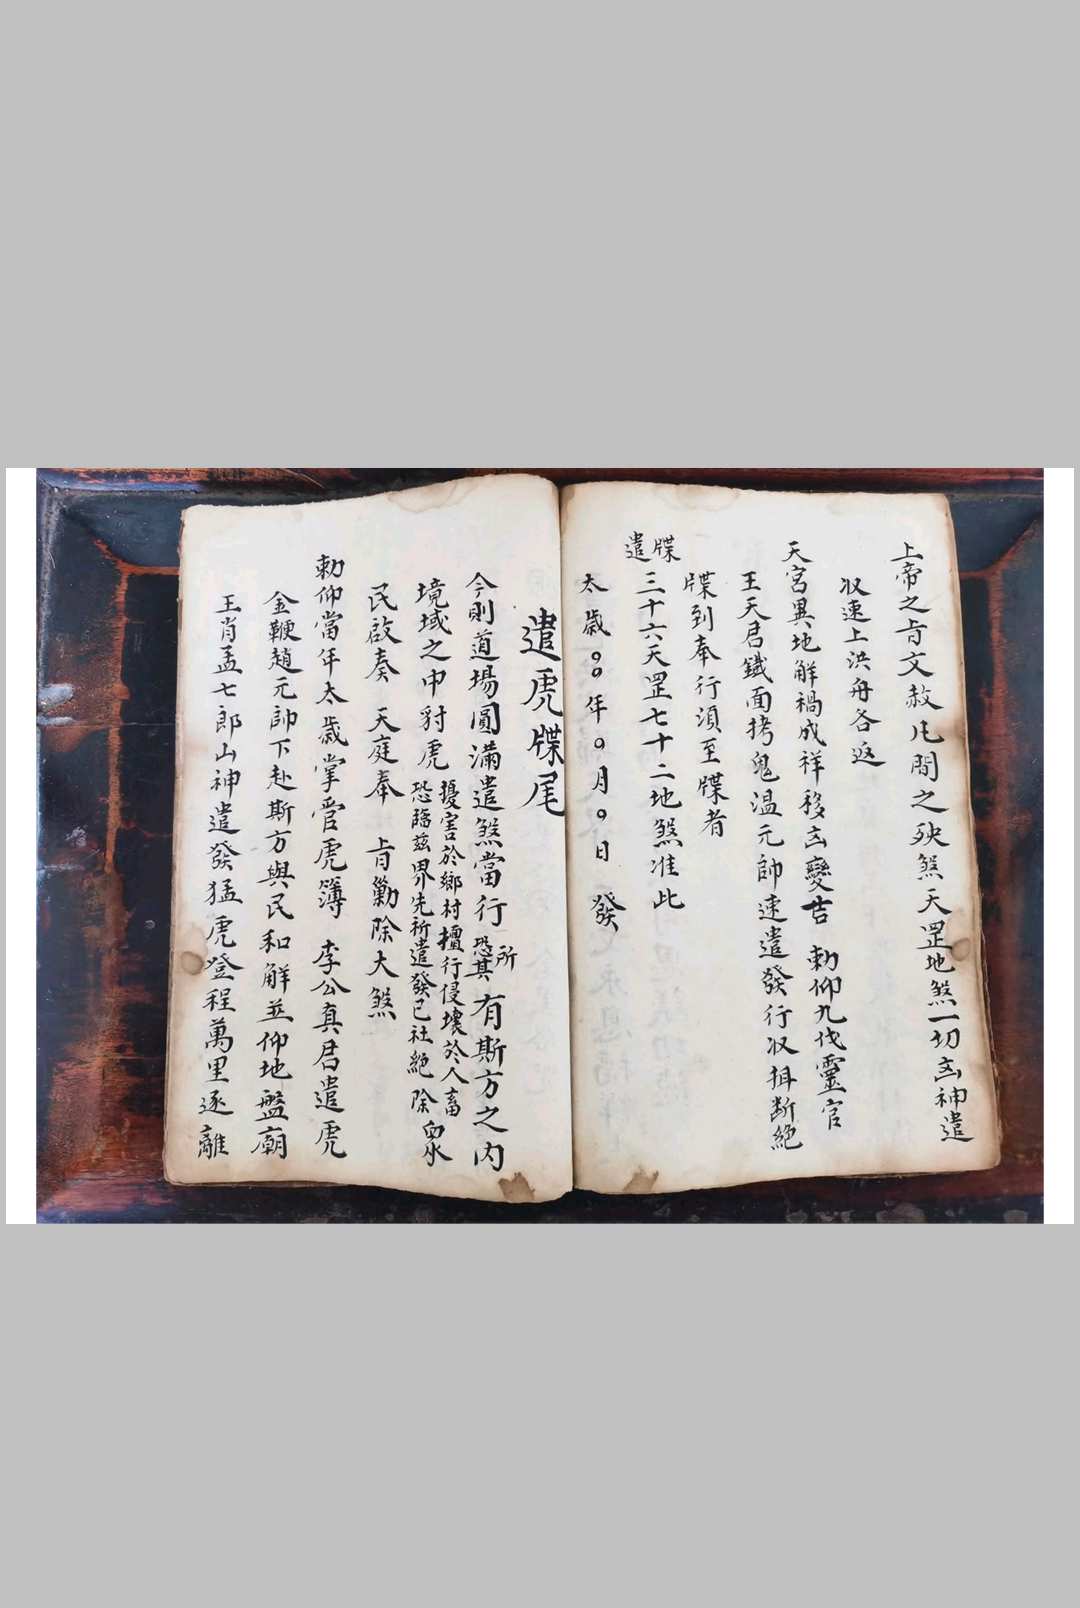 上帝之旨文赦凡間之殃煞天罡地煞一切凶神遣
収速上洪舟各返
天宮異地解禍成祥移凶變吉　勅仰九伐靈官
王天君鐵面拷鬼溫元帥速遣發行収捐断絕
牒到奉行須至牒者
牒
遣　三十六天罡七十二地煞准此
太歲　年　月　日　發
遣虎牒尾
今則道場圓滿遣煞當行　恐其所　有斯方之内
境域之中豺虎　擾害於鄉村擅行侵壞於人畜
恐臨茲界先祈遣發已社絕除　衆
民啟奏　天庭奉　旨勦除大煞
勅仰當年太歲掌管虎簿　李公真君遣虎
金鞭趙元帥下赴斯方與民和解並仰地盤廟
王肖孟七郎山神遣發猛虎登程萬里逐離